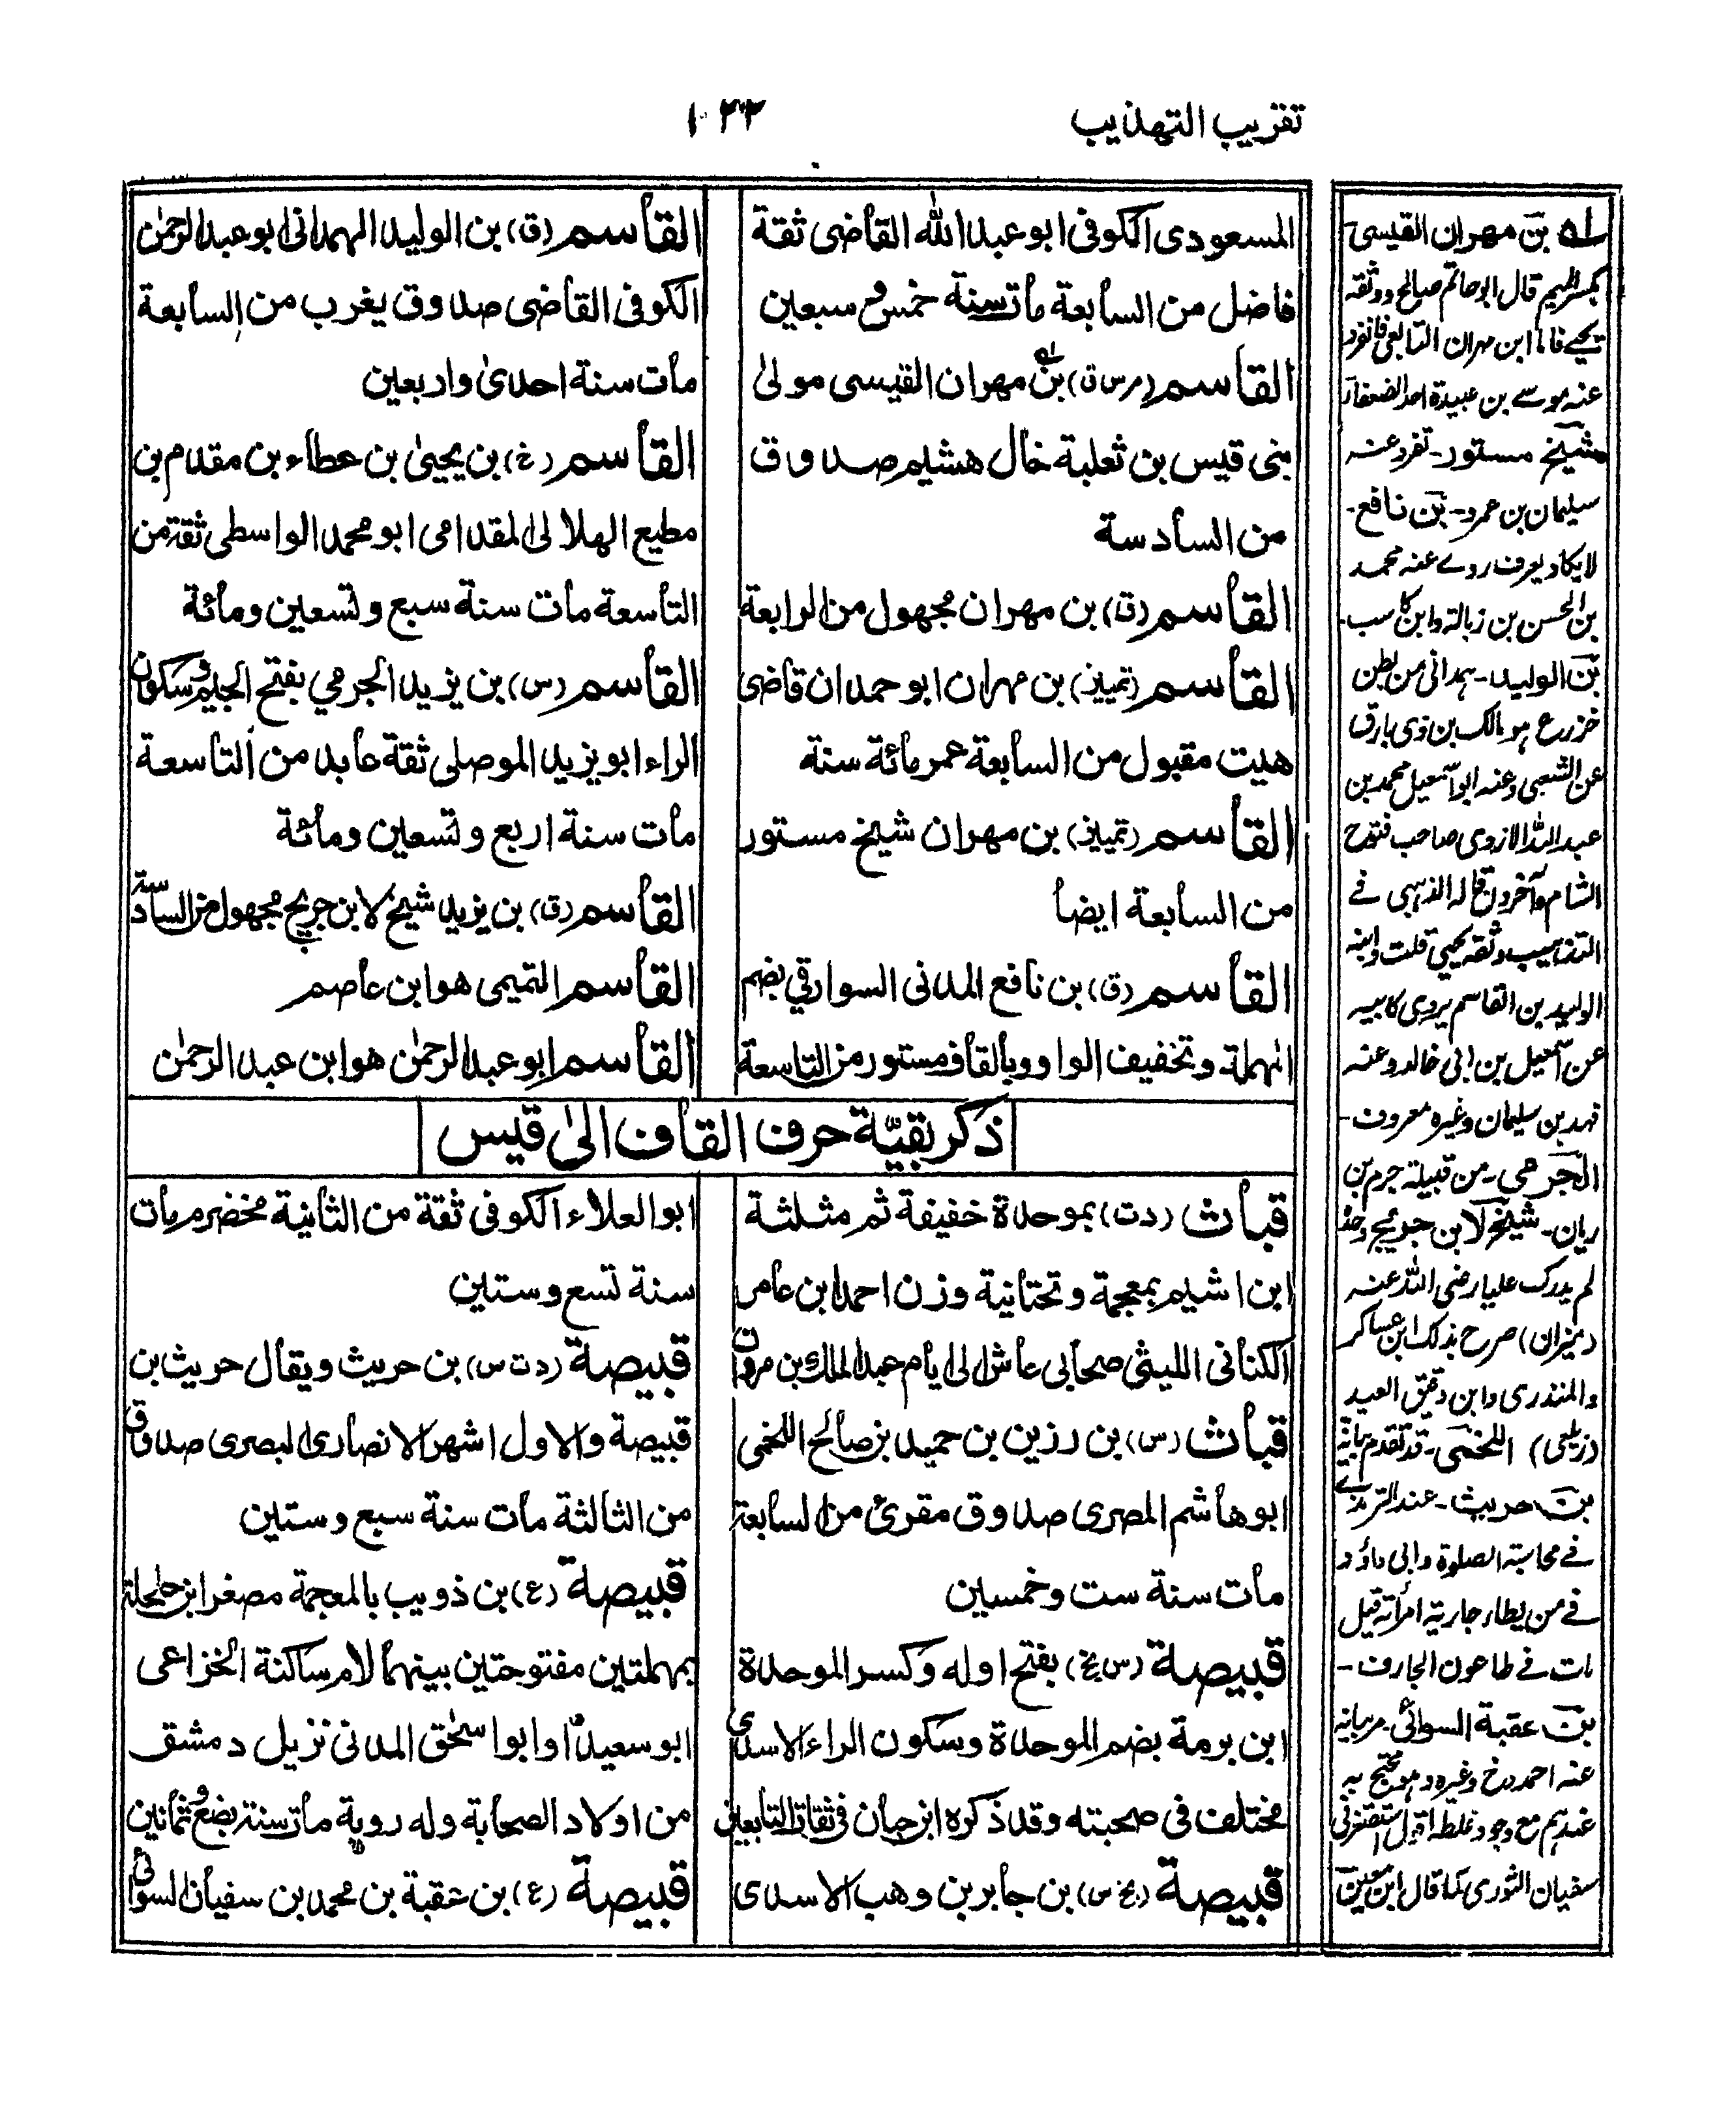 تقريب التهذيب
١٠٣٢
المسعودى الكوفى ابو عبدالله القاضى ثقة
فاضل من السابعة مات سنة خمس وسبعين
القاسم (مرس ق) بن مهران القيسى مولىٰ
بنى قيس بن ثعلبة خال هشيم صدوق
من السادسة
القاسم (ق) بن مهران مجهول من الرابعة
القاسم (تمييز) بن مهران ابو حمدان قاضى
هيت مقبول من السابعة عمر مائة سنة
القاسم (تمييز) بن مهران شيخ مستور
من السابعة ايضا
القاسم (ق) بن نافع المدنى السوارقي بضم
المهملة وتخفيف الواو وبالقاف مستور من التاسعة
القاسم (ق) بن الوليد الهمدانى ابو عبدالرحمٰن
الكوفى القاضى صدوق يغرب من السابعة
مات سنة احدىٰ واربعين
القاسم (خ) بن يحيىٰ بن عطاء بن مقدم بن
مطيع الهلالى المقدامى ابو محمد الواسطى ثقة من
التاسعة مات سنة سبع وتسعين ومائة
القاسم (س) بن يزيد الجرمي بفتح الجيم وسكون
الراء ابو يزيد الموصلى ثقة عابد من التاسعة
مات سنة اربع وتسعين ومائة
القاسم (ق) بن يزيد شيخ لابن جريج مجهول من السادسة
القاسم التميمى هو ابن عاصم
القاسم ابو عبدالرحمٰن هو ابن عبد الرحمٰن
ذكر بقيّة حرف القاف الىٰ قيس
قباث (دت) بموحدة خفيفة ثم مثلثة
ابن اشيم بمعجمة وتحتانية وزن احمد ابن عامر
الكنانى الليثى صحابى عاش الى ايام عبد الملك بن مروان
قباث (س) بن رزين بن حميد بن صالح اللخمى
ابو هاشم المصرى صدوق مقرئ من السابعة
مات سنة ست وخمسين
قبيصة (س بخ) بفتح اوله وكسر الموحدة
ابن برمة بضم الموحدة وسكون الراء الاسدى
مختلف فى صحبته وقد ذكره ابن حبان فى ثقات التابعين
قبيصة (بخ س) بن جابر بن وهب الاسدى
ابو العلاء الكوفى ثقة من الثانية مخضرم مات
سنة تسع وستين
قبيصة (دت س) بن حريث ويقال حريث بن
قبيصة والاول اشهر الانصارى البصرى صدوق
من الثالثة مات سنة سبع وستين
قبيصة (ع) بن ذويب بالمعجمة مصغر ابن حلحلة
بمهملتين مفتوحتين بينهما لام ساكنة الخزاعى
ابو سعيد او ابو اسحٰق المدنى نزيل دمشق
من اولاد الصحابة وله روية مات سنة بضع وثمانين
قبيصة (ع) بن عقبة بن محمد بن سفيان السوائى
بن مهران القيسى
بكسر الميم قال ابو حاتم صالح ووثقه
يحيے فاما ابن مهران التابعى فانفرد
عنه موسے بن عبيدة احد الضعفاء
شيخ مستور۔ تفرد عنه
سليمان بن عمرو۔ بن نافع۔
لا يكاد يعرف روے عنه محمد
بن الحسن بن زبالة وابن كاسب۔
بن الوليد۔ همدانى من بطن
هو مالك بن ذى بارق
عن الشعبى وعنه ابو اسمعيل محمد بن
عبد الله الازدى صاحب فتوح
الشام وآخرون قاله الذهبى فے
التذهيب وثقه يحيى قلت وابنه
الوليد بن القاسم يروى كابيه
عن اسمعيل بن ابى خالد وعنه
فهد بن سليمان وغيره معروف۔
الجرمى۔ من قبيلة جرم بن
ريان۔ شيخ لابن جريج
لم يدرك عليا رضى الله عنه
(ميزان) صرح بذلك ابن عساكر
والمنذرى وابن دقيق العيد
(زيلعى) اللخمى۔ قد تقدم بيانه
بن حريث۔ عند الترمذے
فے محاسبة الصلوة وابى داؤد
فے من يطأ جارية امرأته قيل
مات فے طاعون الجارف۔
بن عقبة السوائى۔ مر بيانه
عنه احمد وغيره وهو محتج به
عندهم مع وجود غلطه
سفيان الثورى كما قال ابن معين